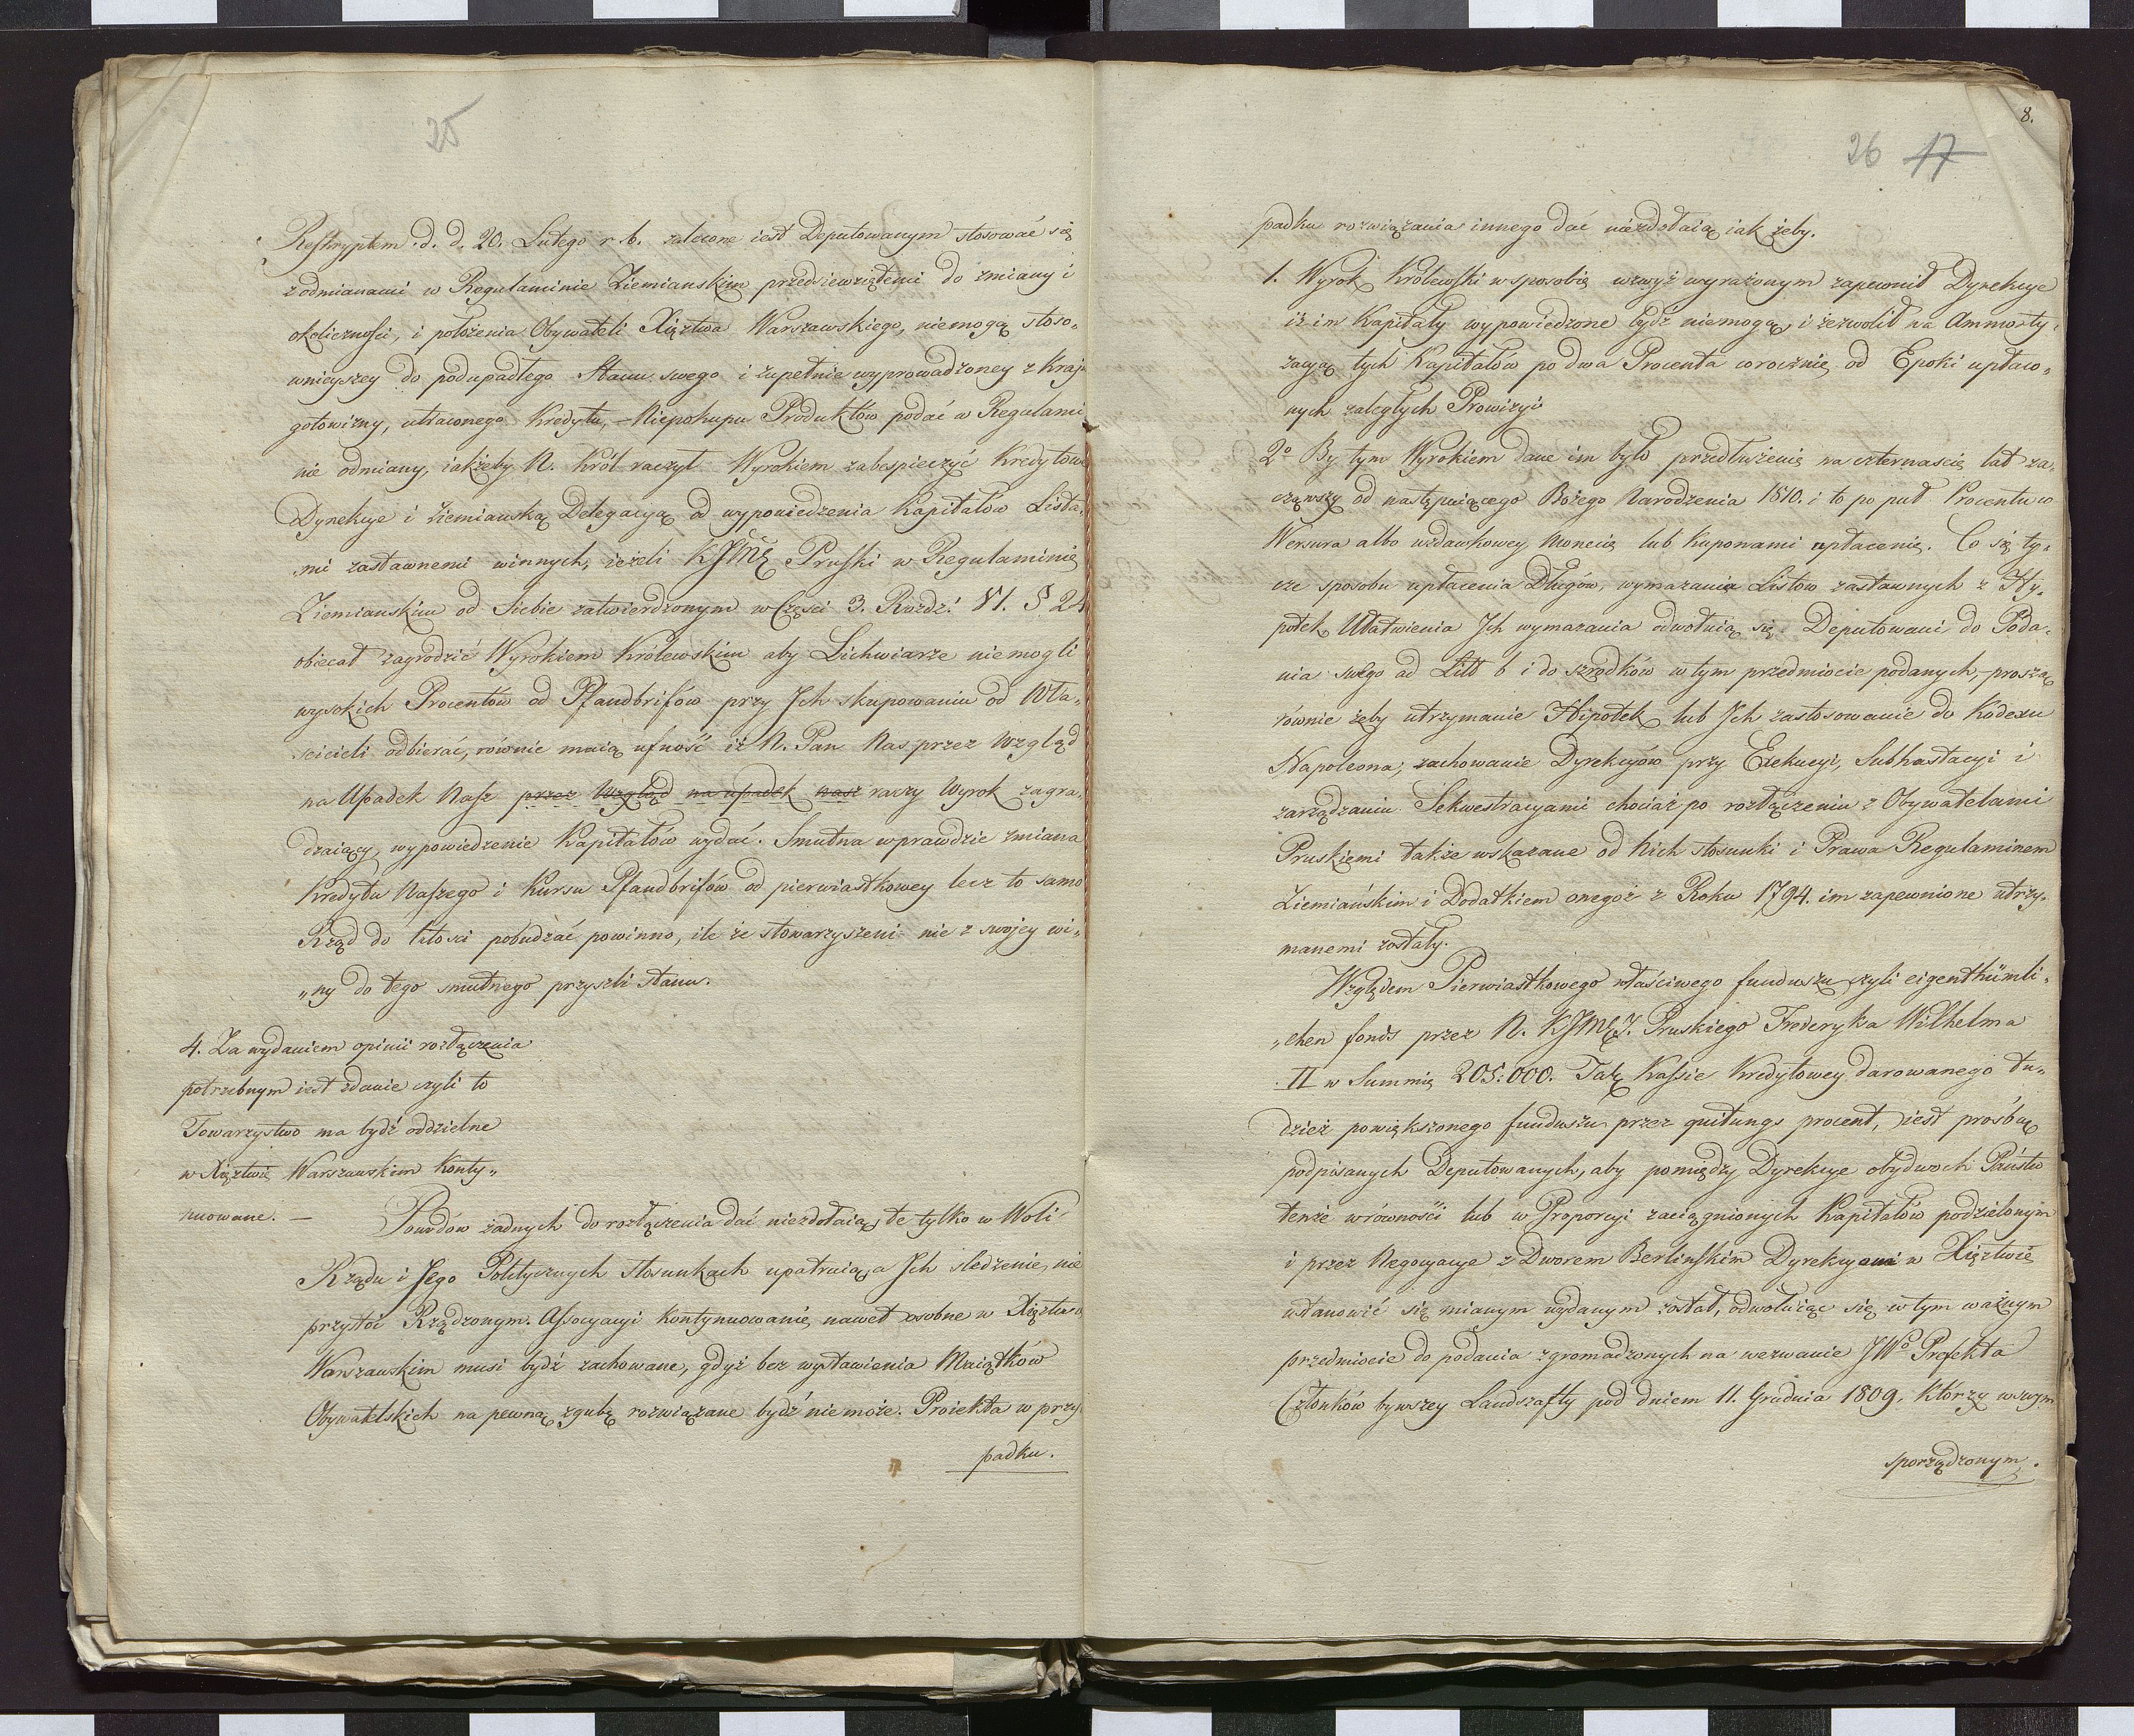 25
Reskryptem d. d. 20. Lutego r. b. zalecone iest Deputowanym stosować się
z odmianami w Regulaminie Ziemianskim przedsiewziętemi do zmiany i
okoliczności, i położenia Obywateli Xięztwa Warszawskiego, niemogą stoso„
wnieyszey do podupadłego Stanu swego i zupełnie wyprowadzoney z Kraju
gotowizny, utraconego Kredytu, – Niepokupu Produktów podać w Regulami
nie odmiany, iak żeby N. Król raczył Wyrokiem zabespieczyć Kredytowe
Dyrekcye i Ziemianską Delegacyą od wypowiedzenia Kapitałów Lista„
mi zastawnemi winnych, ieżeli KJMć Pruski w Regulaminie
Ziemianskim od Siebie zatwierdzonym w Części 3. Rozdz: VI. § 24
obiecał zagrodzić Wyrokiem Królewskim aby Lichwiarze niemogli
wysokich Procentów od Pfandbrifów przy Ich skupowaniu od Wła„
scicieli odbierać, równie maią ufność iż N. Pan Nas przez wzgląd
na Upadek Nasz przez Wzgląd na upadek nasz raczy Wyrok zagra„
dzaiący wypowiedzenie Kapitałów wydać. Smutna wprawdzie zmiana
Kredytu Naszego i Kursu Pfandbrifów od pierwiastkowey lecz to samo
Rząd do litości pobudzać powinno, ile że stowarzyszeni nie z swojey wi„
„ny do tego smutnego przyszli stanu.
4. Za wydaniem opinii rozłączenia
potrzebnym iest zdanie czyli to
Towarzystwo ma bydź oddzielne
w Xięztwie Warszawskim Konty„
nuowane. —
Powodów żadnych do rozłączenia dać niezdołaią, te tylko w Woli
Rządu i Jego Politycznych stosunkach upatruią, a Ich sledzenie, nie
przystoi Rządzonym. Assocyacyi Kontynuowanie, nawet osobne w Xięztwie
Warszawskim musi bydź zachowane, gdyż bez wystawienia Maiątków
Obywatelskich na pewną zgubę rozwiązane bydź niemoże. Proiekta w przy
padku.
8.
26 17
padku rozwiązania innego dać niezdołaią iak żeby.
1. Wyrok Królewski w sposobie wzwyż wyrażonym zapewnił Dyrekcye
iż im Kapitały wypowiedzone bydź niemogą, i zezwolił na Ammorty„
zacyą tych Kapitałów po dwa Procenta corocznie od Epoki upłaco„
nych zaległych Prowizyi
2o By tym Wyrokiem dane im było przedłużenie na czternaście lat za„
cząwszy od następuiącego Bożego Narodzenia 1810. i to po puł Procentu w
Wersura albo wzdawkowey Monecie lub Kuponami upłacenie. Co się ty„
cze sposobu upłacenia Długów, wymazania Listów zastawnych z Hy„
potek Ułatwienia Ich wymazania odwołuią się Deputowani do Poda„
nia swego ad Litt b i do szrodków w tym przedmiocie podanych, – proszą
równie żeby utrzymanie Hipotek lub Ich zastosowanie do Kodexu
Napoleona, zachowanie Dyrekcyów przy Exekucyi, Subhastacyi i
zarządzaniu Sekwestracyami chociaż po rozłączeniu z Obywatelami
Pruskiemi także wskazane od Nich stosunki i Prawa Regulaminem
Ziemiańskim i Dodatkiem onegoż z Roku 1794. im zapewnione utrzy„
manemi zostały.
Względem Pierwiastkowego właściwego funduszu czyli eigenthümli„
„chen fonds przez N. KJMCJ. Pruskiego Frederyka Wilhelma
II w Summie 205.000. Tal. Kassie Kredytowey darowanego tu„
dzież powiększonego funduszu przez quitungs procent, iest prośbą
podpisanych Deputowanych, aby pomiędzy Dyrekcye obydwoch Państw
tenże w równości lub w Proporcyi zaciągnionych Kapitałów podzielonym
i przez Negocyacye z Dworem Berlinskim Dyrekcyami w Xięztwie
ustanowić się mianym wydanym został, odwołuiąc się w tym ważnym
przedmiocie do podania zgromadzonych na wezwanie JWo Prefekta
Członków bywszey Landszafty pod dniem 11. Grudnia 1809. Którzy w swym
sporządzonym.